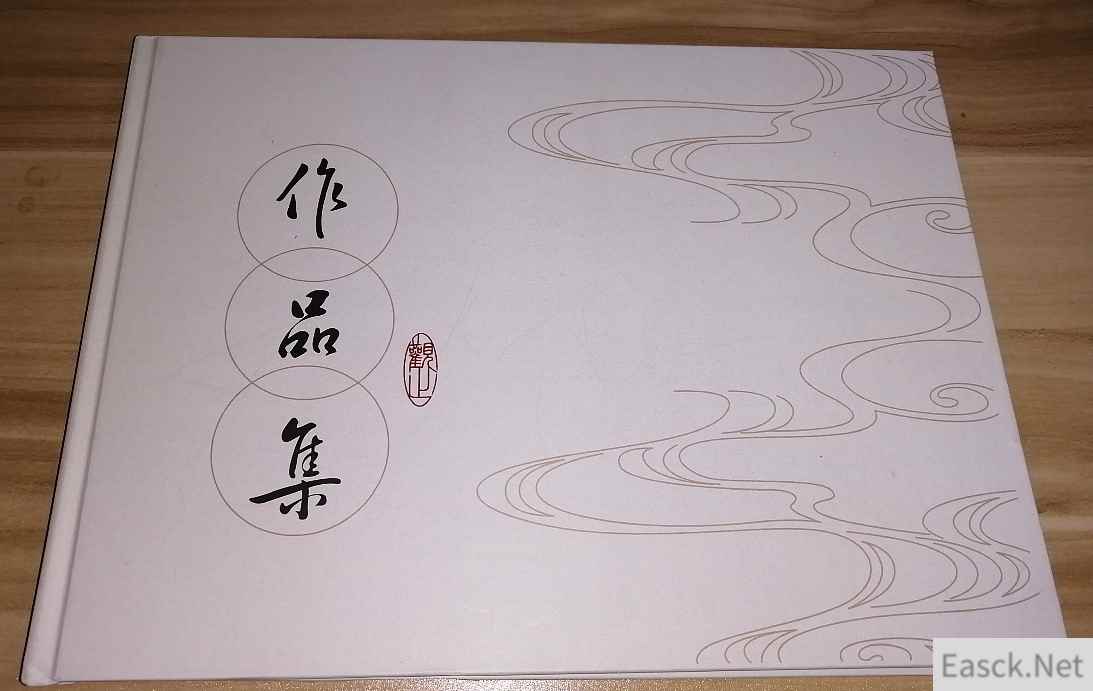 作
品
集
觀止
Easck.Net